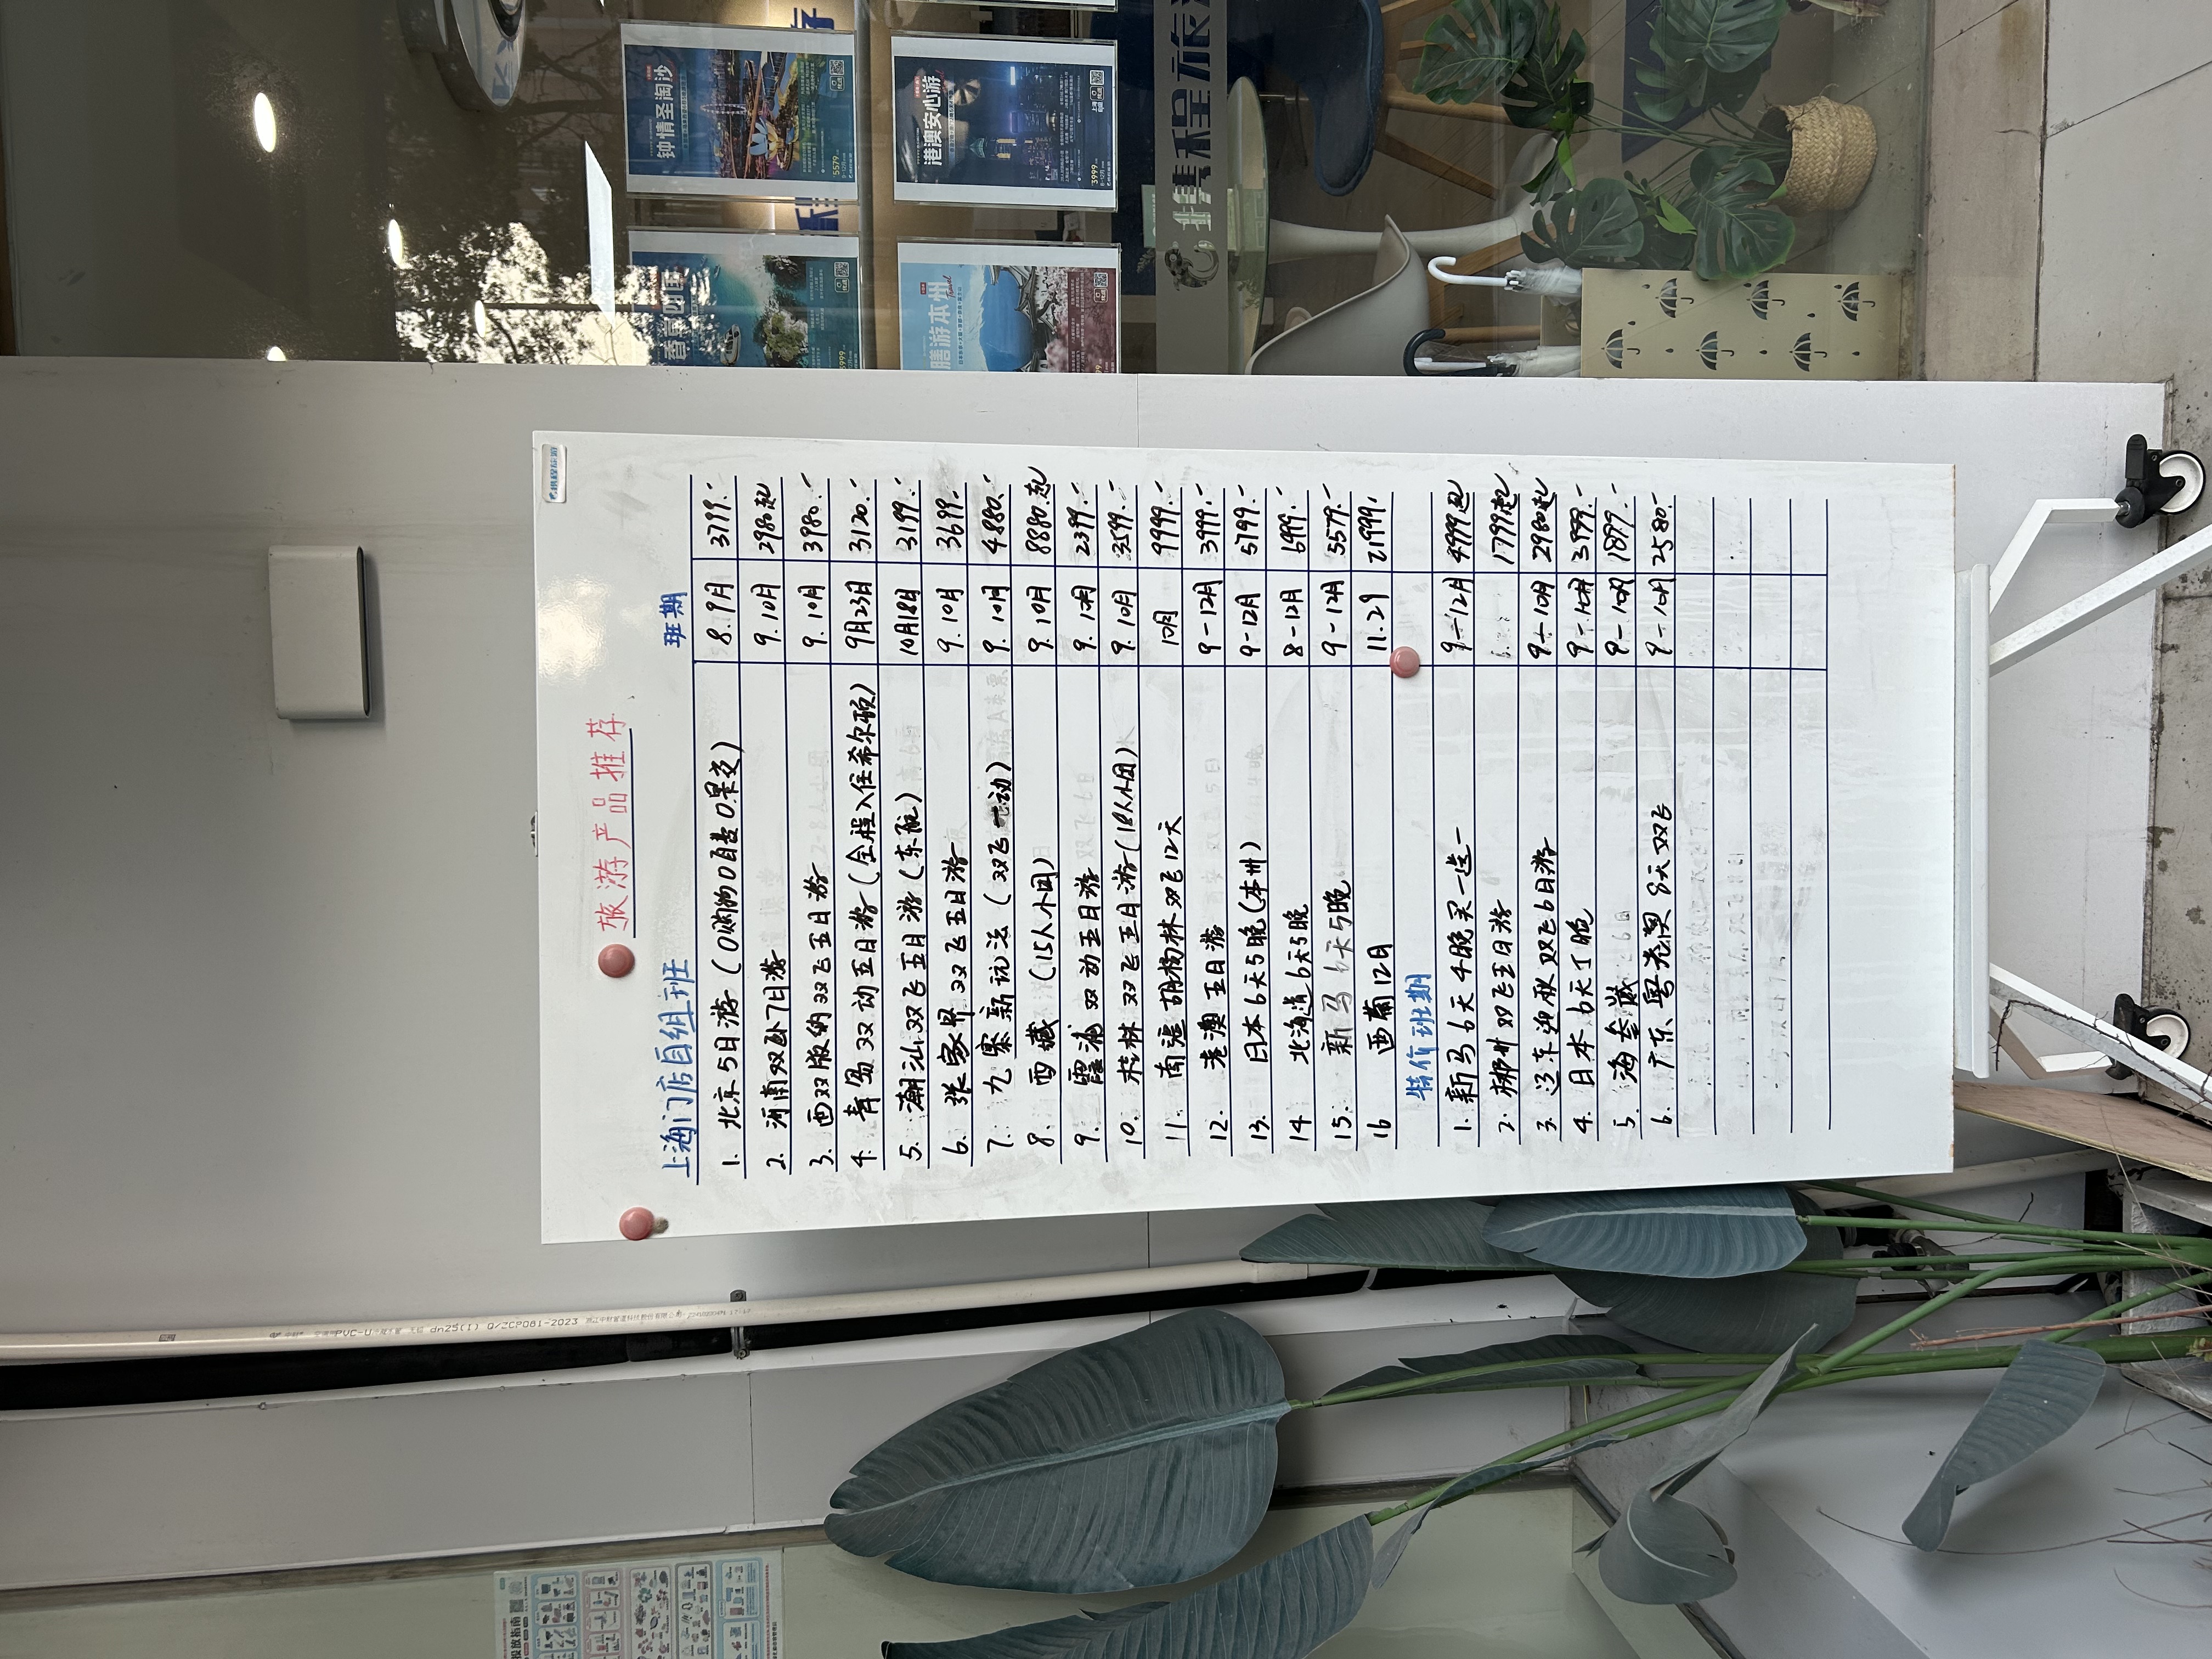 携程旅游
旅游产品推荐
上海门店自组班 班期
1. 北京5日游(0购物0自费0景交) 8.9月 3799.-
2. 河南双卧7日游 9.10月 2980起
3. 西双版纳双飞五日游 9.10月 3980.-
4. 青岛双动五日游(全程入住希尔顿) 9月23日 3120.-
5. 潮汕双飞五日游(东航) 10月18日 3199.-
6. 张家界双飞五日游 9.10月 3699.-
7. 九寨新玩法(双飞一动) 9.10月 4880.-
8. 西藏(15人小团) 9.10月 8880.起
9. 霞浦双动五日游 9.10月 2399.-
10. 桂林双飞五日游(18人小团) 9.10月 3599.-
11. 南疆胡杨林双飞12天 10月 9999.-
12. 港澳五日游 9-12月 3999.-
13. 日本6天5晚(本州) 9-12月 5799.-
14 北海道6天5晚 8-12月 6999.-
15. 新马6天5晚 9-12月 5579.-
16 西葡12日 11.29 21999.
特价班期
1. 新马6天4晚买一送一 9-12月 4999起
2. 郴州双飞五日游 1799起
3. 辽东迎秋双飞6日游 9-10月 2980起
4. 日本6天丁晚 9-10月 3999.-
5. 海参崴 9-10月 1899.-
6. 广东粤港澳8天双飞 9-10月 2580.-
钟情圣淘沙
5579
港澳安心游
3999
膳游本州
Travel
携程旅
PVC-U
dn25(1) Q/ZCP081-2023
投放指南